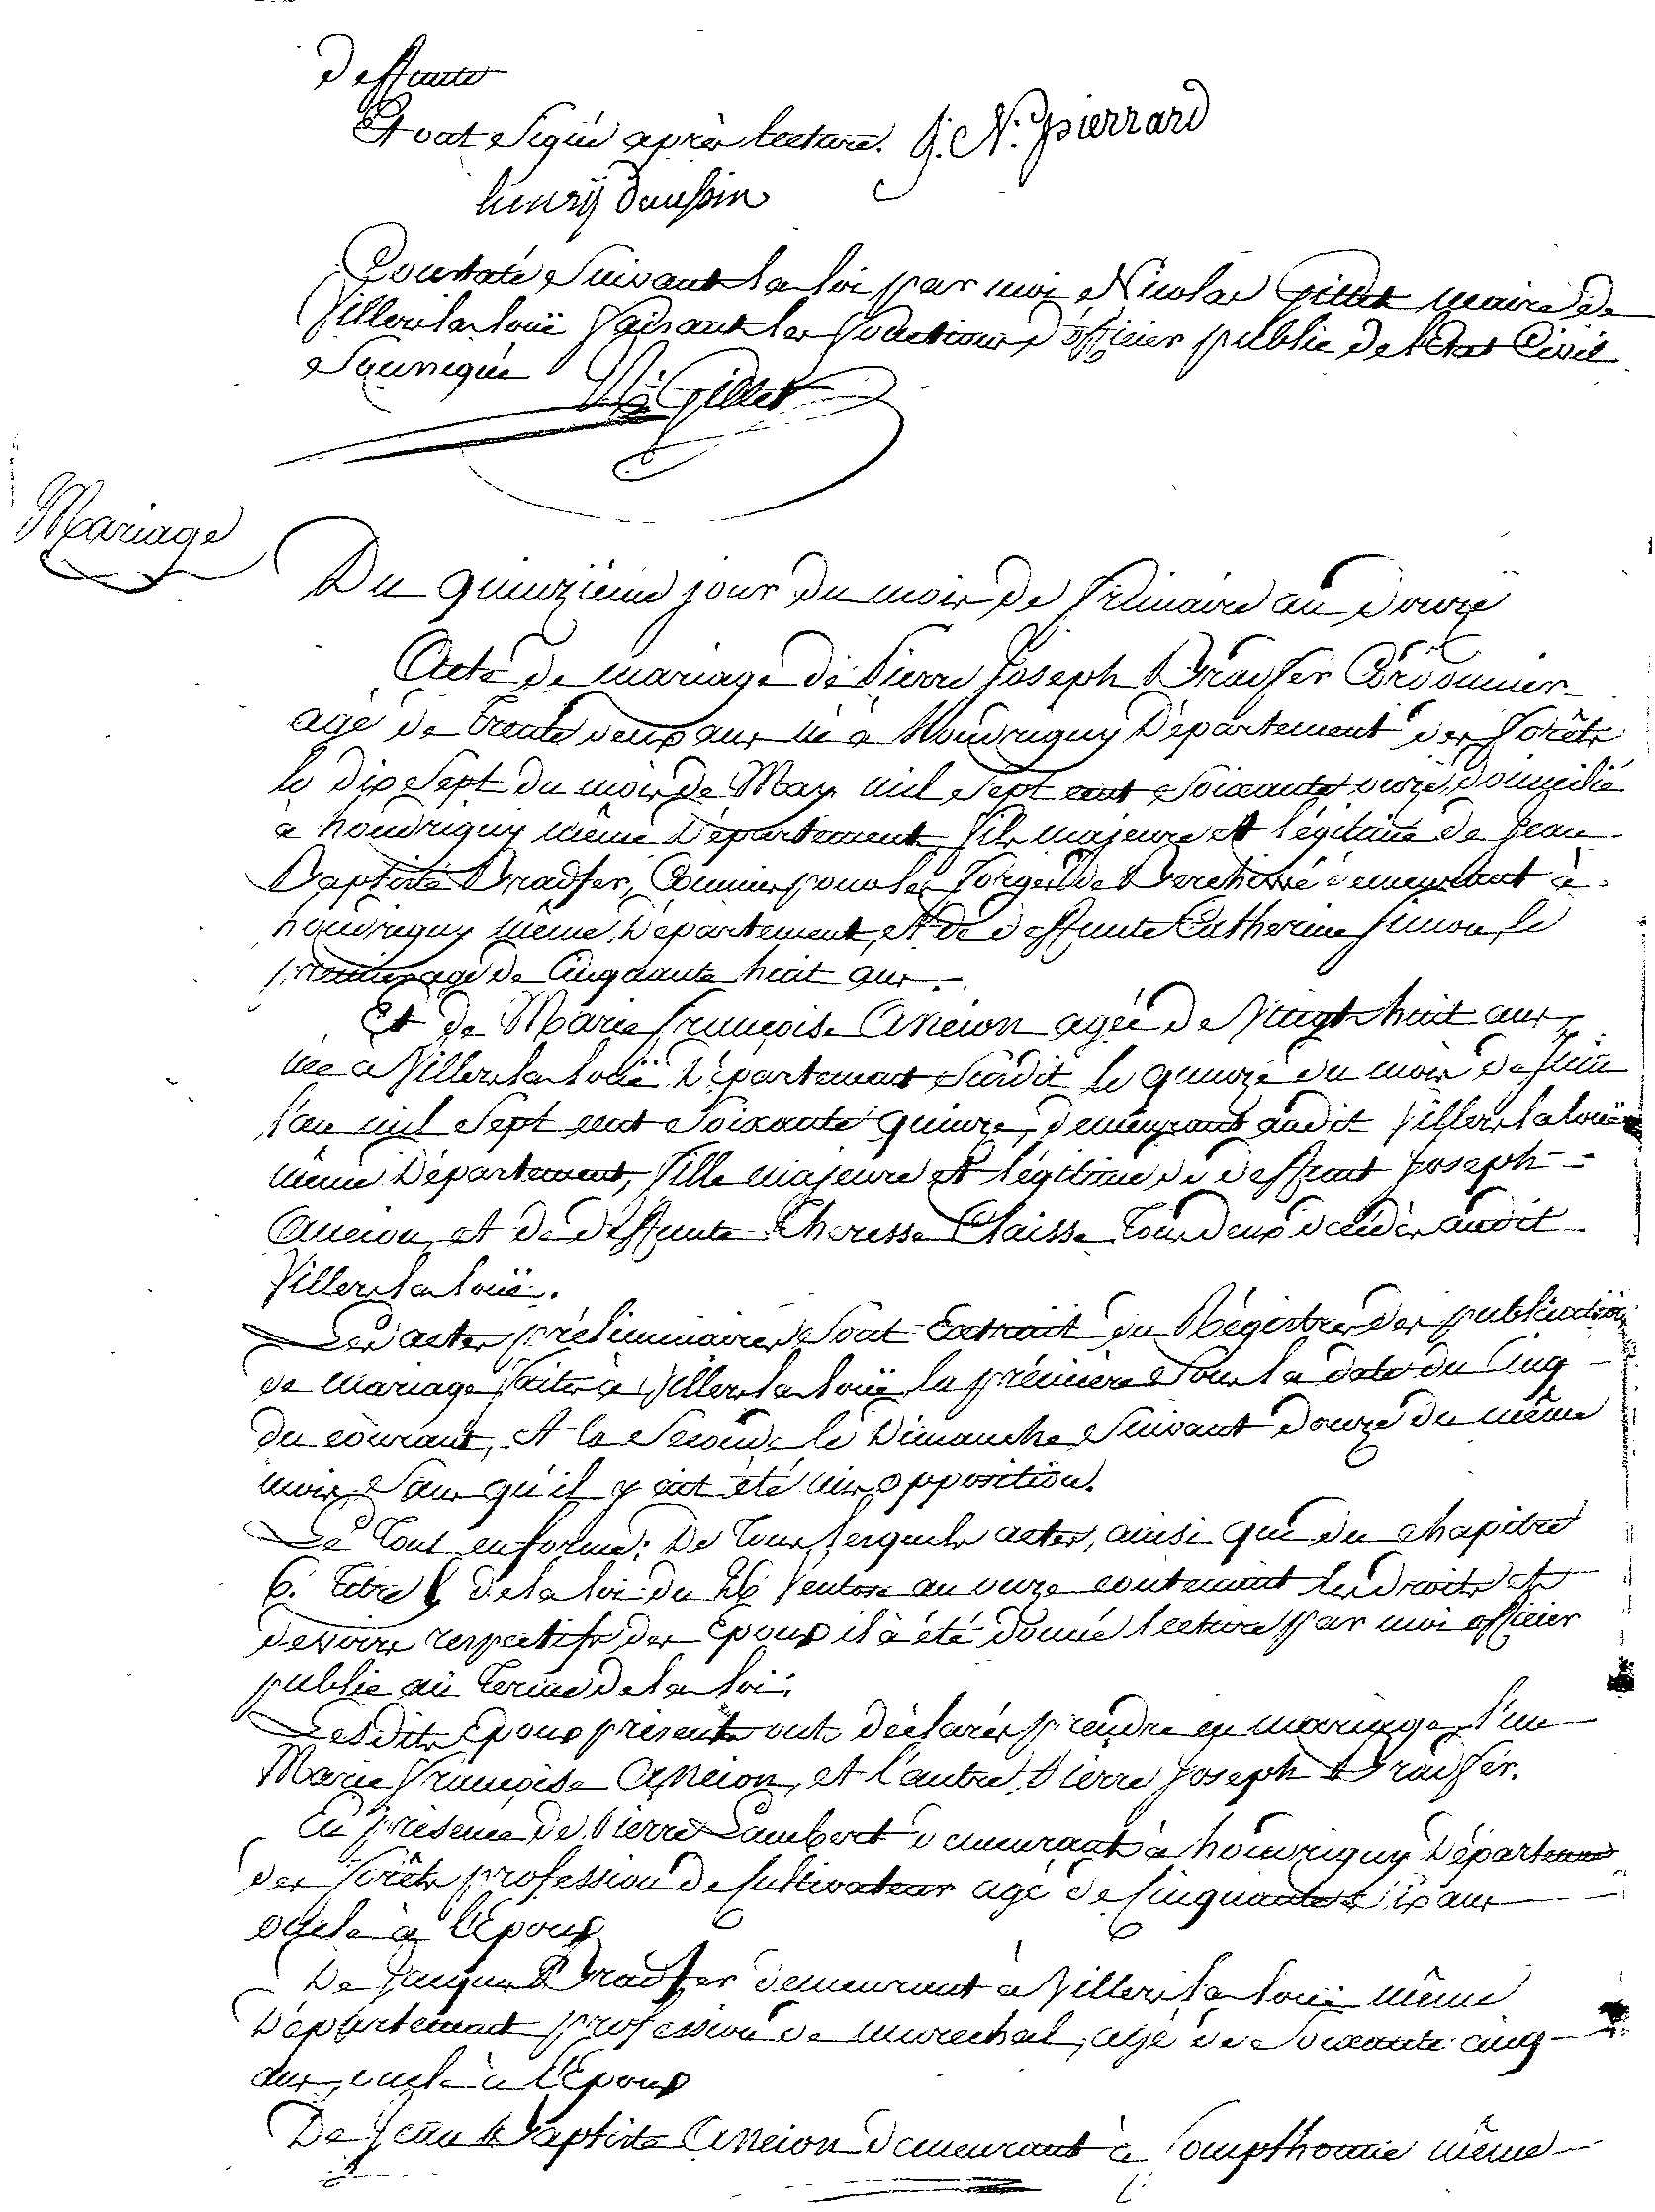 deffunte
Et ont signé après lecture. J. N. Pierrard
henrÿ daussin
Constaté suivant la loi par moi Nicolas Gillet maire de
Villers la louë faisant les fonctions d'officier public de l'Etat Civil
Soussigné N. Gillet
Mariage
Du quinzième jour du mois de frimaire an douze
Acte de mariage de Pierre Joseph Bradfer Cordonnier
agé de trente deux ans né à houdrigny Département des forêts
le dix sept du mois de May mil sept cent soixante onze, domicilié
à houdrigny même Département fils majeure et légitime de Jean
Baptiste Bradfer, Commis pour les forges de Berchiwé demeurant à
houdrigny même Département, et de deffunte Catherine Simon, le
premier agé de Cinquante huit ans.
Et de Marie françoise Ancion agée de Vingt huit ans,
née à Villers la louë Département susdit le quinze du mois de Juin
l'an mil sept cent soixante quinze, demeurant audit Villers la louë
même Département, fille majeure et légitime de deffunt Joseph
Ancion, et de deffunte Theresse Claisse tous deux décédés audit
Villers la louë.
Les actes préliminaires sont extrait du Régistre des publications
de mariage faits à Villers la louë la première sous la date du Cinq
du courant, et la seconde le Dimanche suivant douze du même
mois sans qu'il y ait été mis opposition.
Le tout en forme; De tous lesquels actes, ainsi que du chapitre
6. titre de la loi du 26 Ventose an onze contenant les droits et
devoirs respectifs des Epoux il à été donné lecture par moi officier
public aü terme de la loi.
Lesdits Epoux présents ont déclarés prendre en mariage, l'un
Marie françoise Ancion, et l'autre Pierre Joseph Bradfer.
En présence de Pierre Lambert demeurant à houdrigny Département
des forêts profession de Cultivateur agé de Cinquante six ans
oncle à l'Epoux
De Jacques Bradfer demeurant à Villers la louë même
Département profession de marechal, agé de soixante cinq
ans, oncle à l'Epoux
De Jean Baptiste Ancion demeurant à même